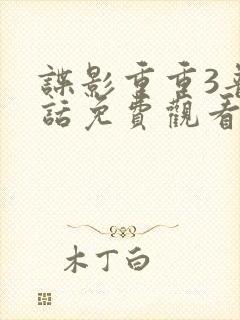 諜影重重3
話免費觀看
木丁白